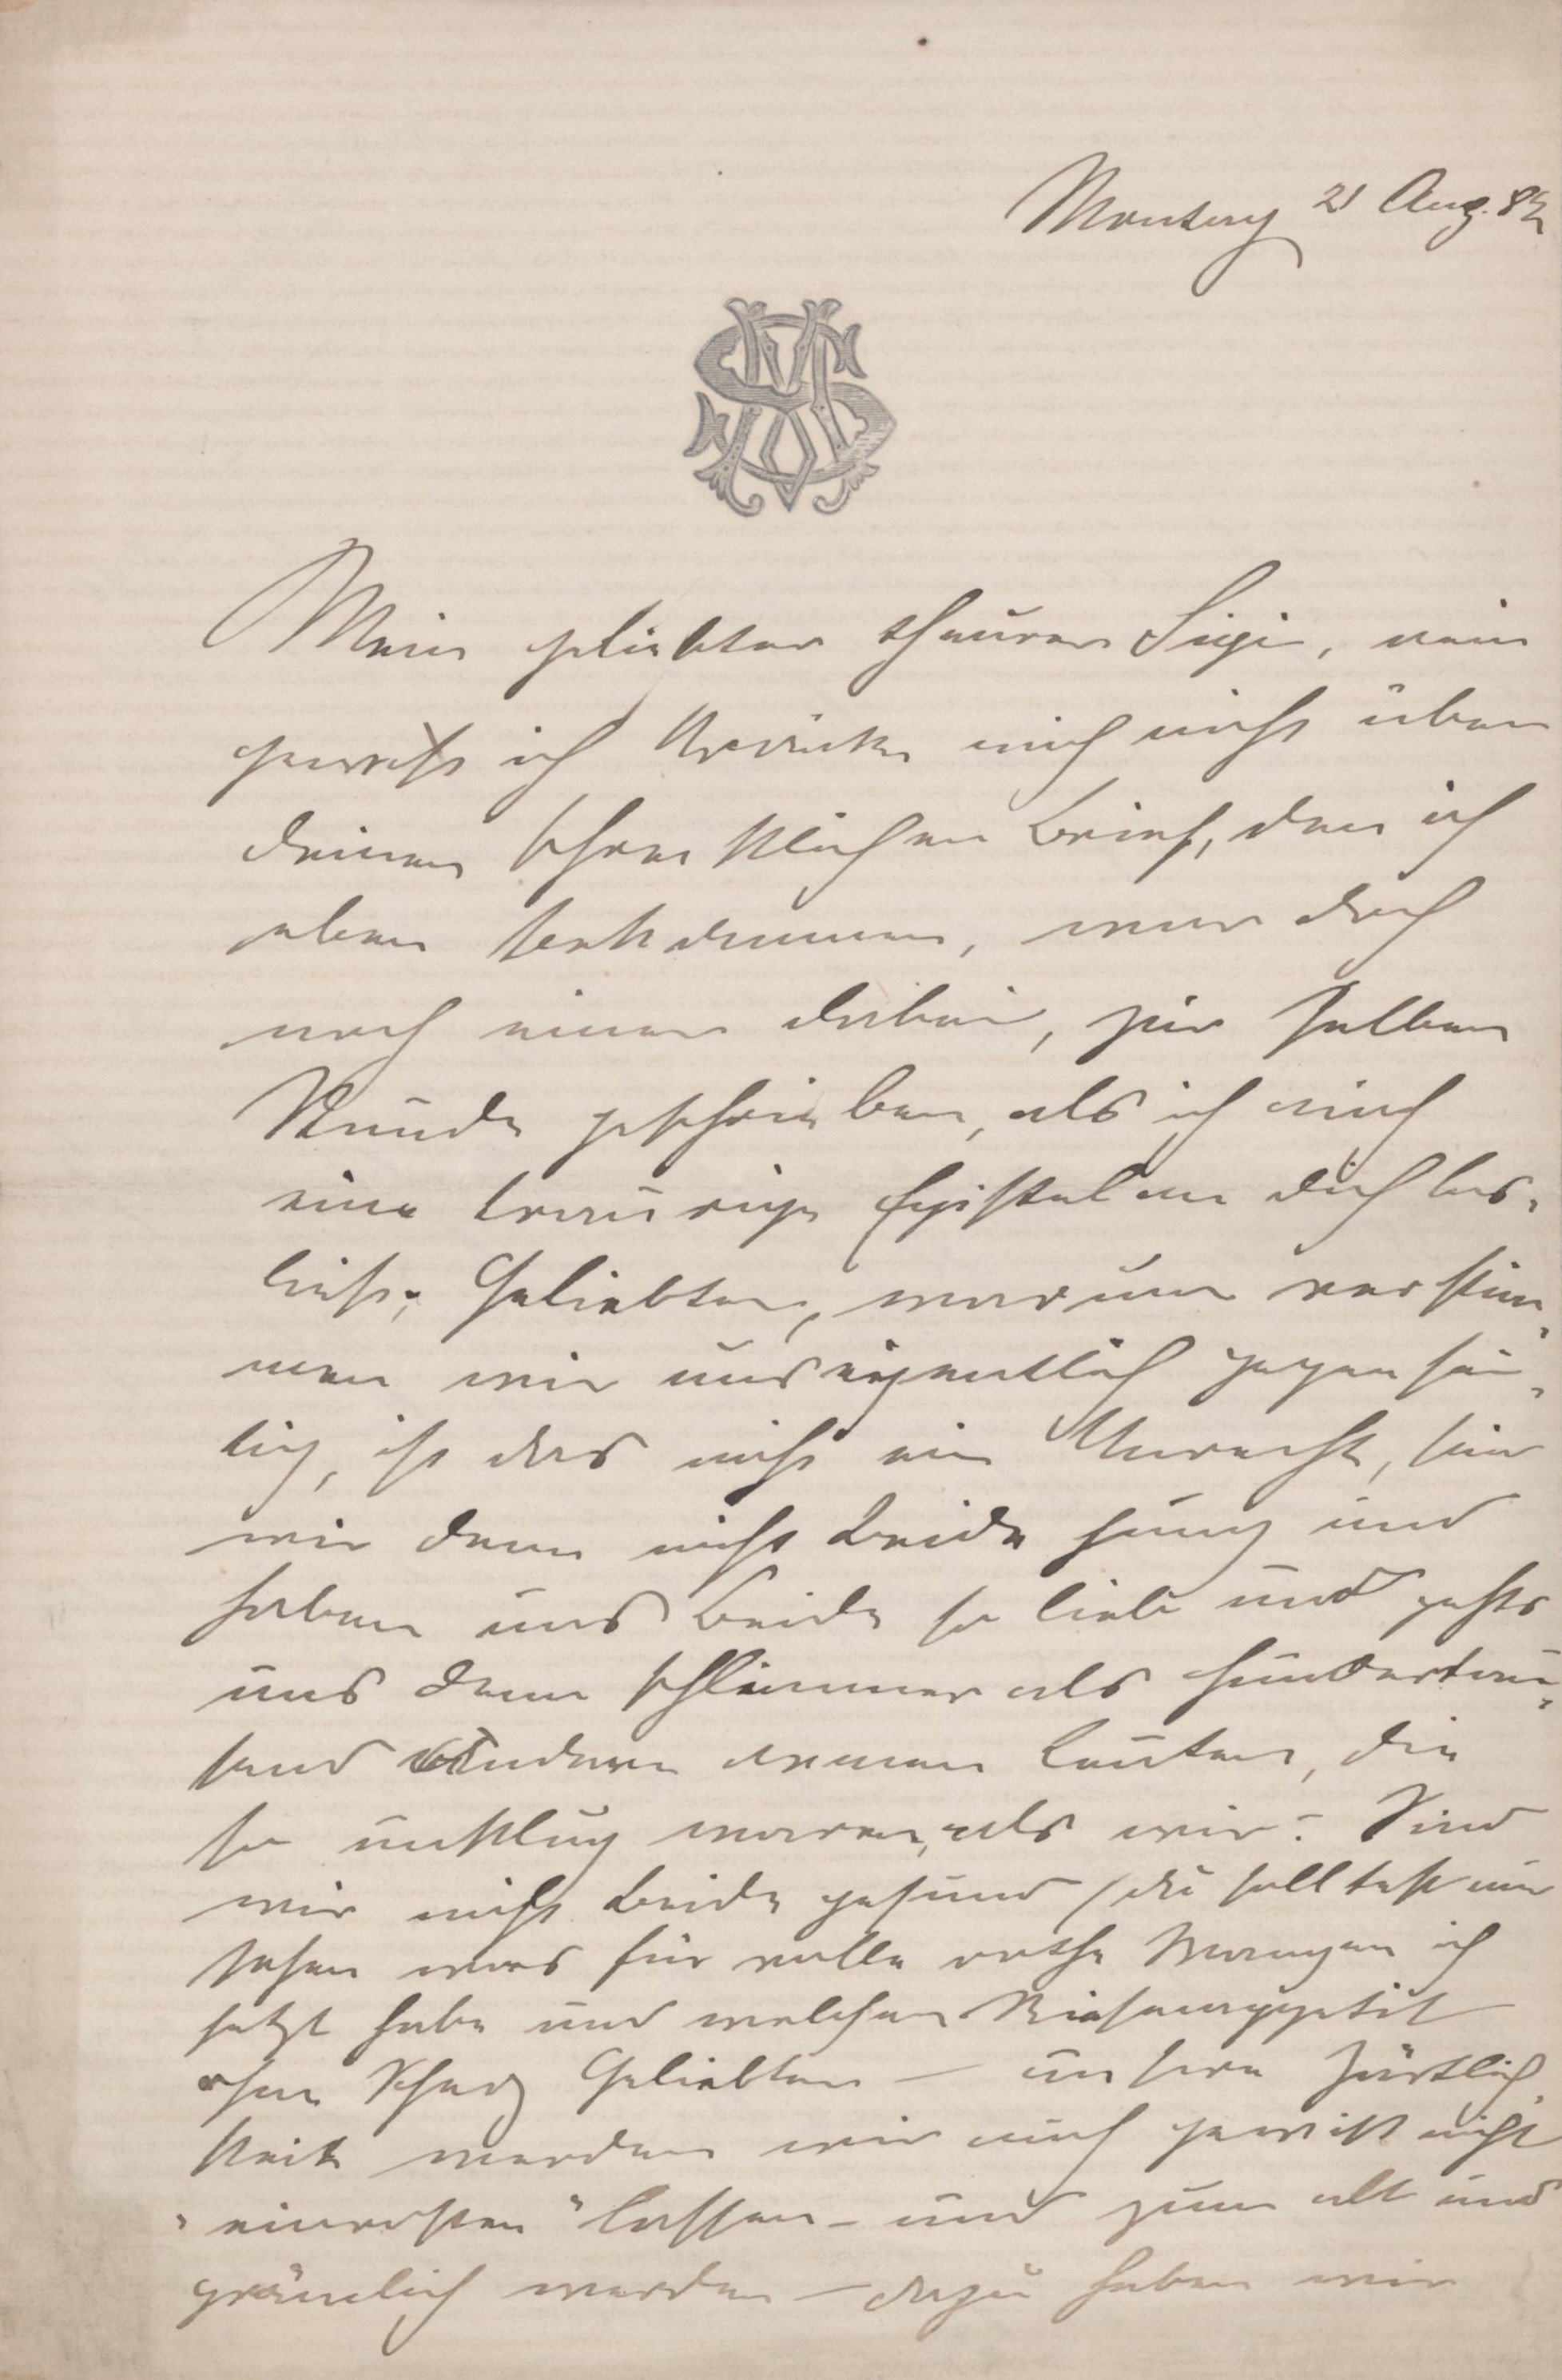 Montag 21 Aug. 82
MS
Mein geliebter theurer Sigi, nein
gewiß ich kränke mich nicht über
deinen schrecklichen Brief, den ich
eben bekommen, war doch
noch einer dabei, zur selben
Stunde geschrieben, als ich auch
eine traurige Epistel an dich los-
ließ; Geliebter, warum verstim-
men wir uns eigentlich gegensei-
tig, ist das nicht ein Unrecht, sin
wir denn nicht beide jung und
haben uns beide so lieb und gehts
uns denn schlimmer als hunderttau-
send Andern armen Leuten, die
so unklug waren, als wir. Sind
wir nicht beide gesund, du solltest nur
sehen was für volle rothe Wangen ich
jetzt habe und welchen Riesenappetit
ohne Scherz Geliebter – unsere Zärtlich-
keit werden wir auch gewiß nicht
"einrosten" lassen – und zum alt und
grämlich werden – dazu haben wir